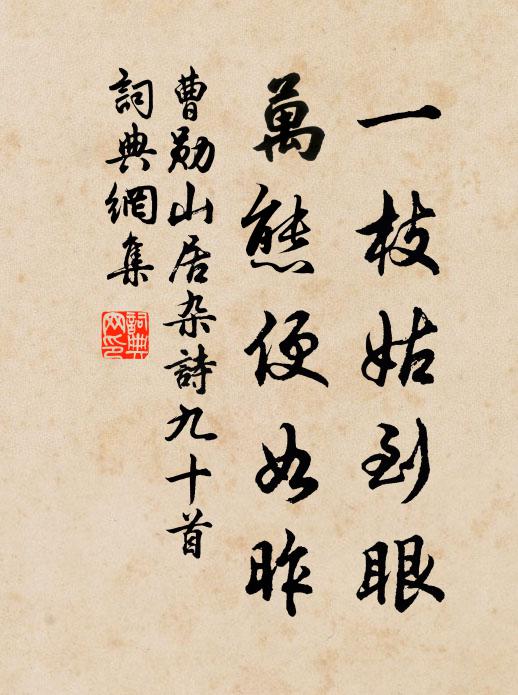 一枝姑到眼
萬態便如昨
曹勛山居杂詩九十首
詞典網集
詞典網印